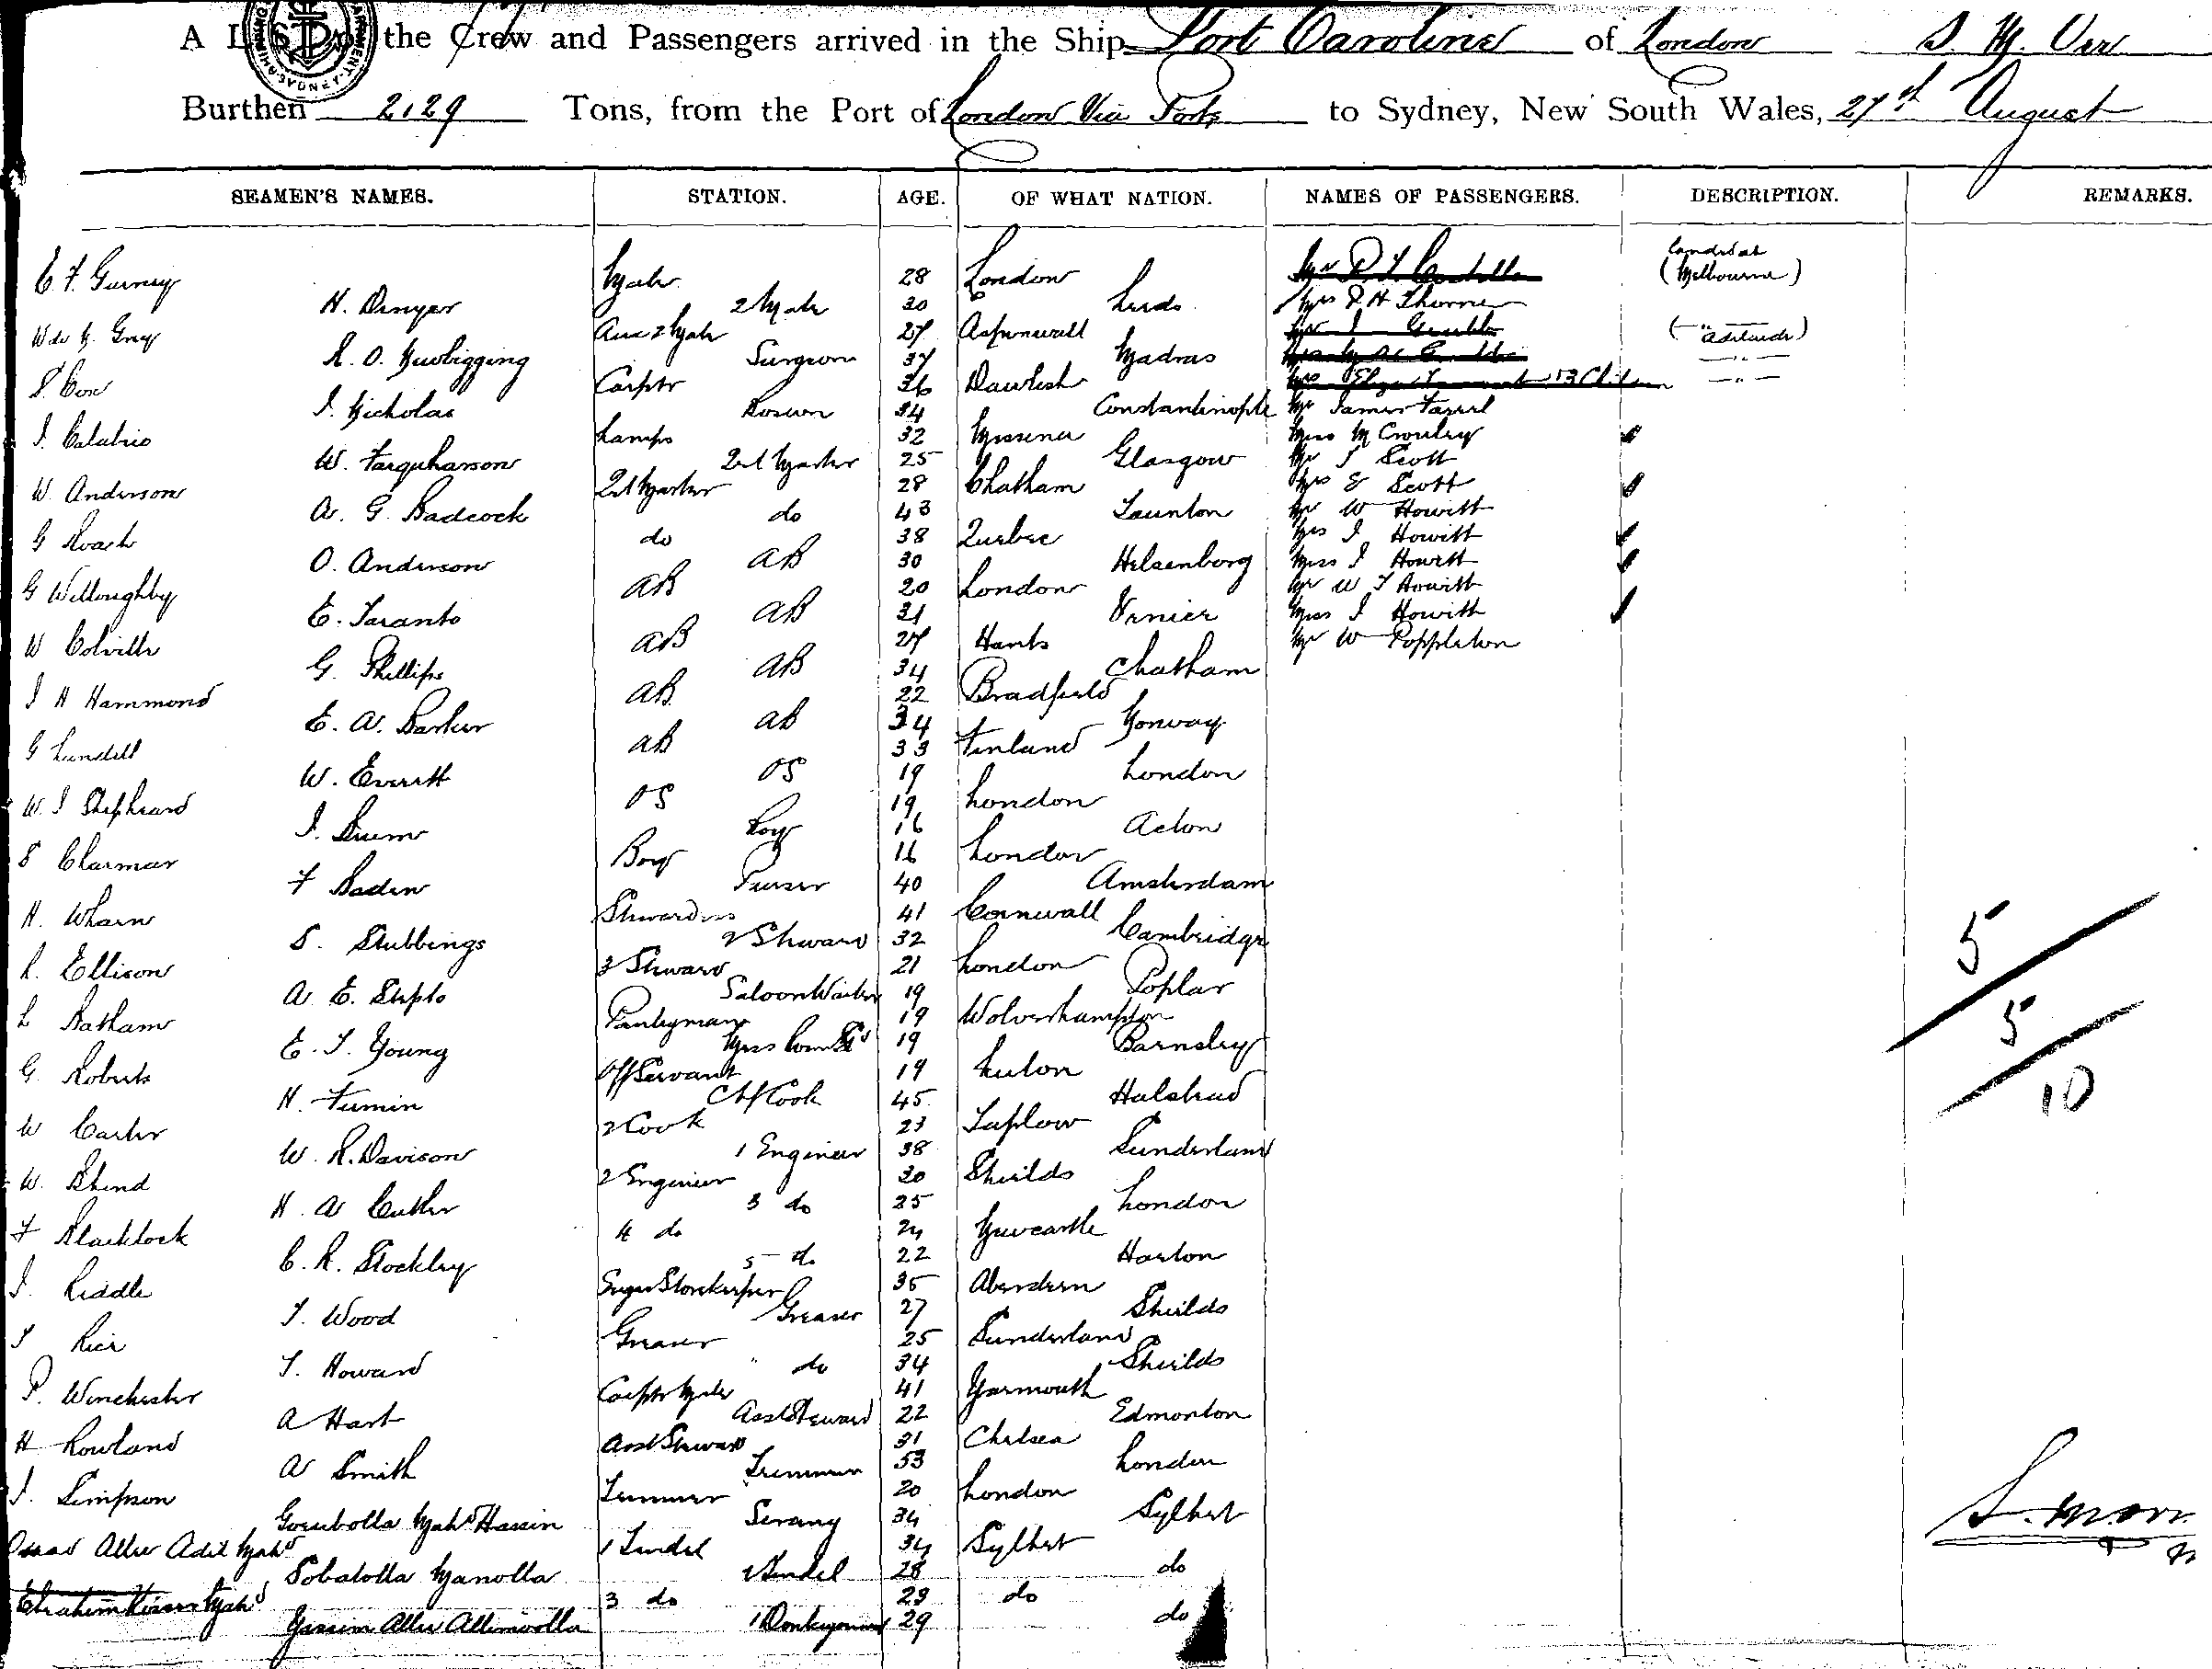 A LIST of the Crew and Passengers arrived in the Ship Port Caroline of London
Burthen 2129 Tons, from the Port of London Via Ports to Sydney, New South Wales, 27th August
SEAMEN'S NAMES. STATION. AGE. OF WHAT NATION. NAMES OF PASSENGERS. DESCRIPTION. REMARKS.
C. F. Gurney Mate 28 London Landed at (Melbourne)
H. Denyer 2 Mate 30 Leeds Mrs R H Thorne
W de M. Grey Aux 2 Mate 27 Aspinwall (Adelaide)
R. O. Newbigging Surgeon 37 Madras
S. Cow Carptr 36 Dawlish
J. Nicholas Bosun 34 Constantinople Mr James Farrel
J. Calabrio Lamps 32 Messina Miss M Crowley
W. Farquharson Qr Master 25 Glasgow Mr J Scott
W. Anderson Qr Master 28 Chatham Mrs E Scott
A. G. Badcock do 43 Taunton Mr W Howitt
G Roach do 38 Quebec Mrs J Howitt
O. Anderson AB 30 Helsenborg Miss J Howitt
G Willoughby AB 20 London Mr W J Howitt
E. Taranto AB 31 Venice Miss J Howitt
W Colville AB 27 Hants Mr W Poppleton
G. Phillips AB 34 Chatham
J H Hammond AB 22 Bradfield
E. A. Barker AB 34 Norway
G Lundell AB 33 Finland
W. Everett OS 19 London
W. J Shepheard OS 19 London
J. Drum Boy 16 Acton
S Charman Boy 16 London
F Baden Purser 40 Amsterdam
H. Wharn Stewardess 41 Cornwall
S. Stubbings 2 Steward 32 Cambridge
R. Ellison 3 Steward 21 London
A. E. Stepto Saloon Waiter 19 Poplar
L Batham Pantryman 19 Wolverhampton
E. J. Young Mess Room Std 19 Barnsley
G. Roberts Off Servant 19 Luton
H. Firmin Chf Cook 45 Halstead
W Carter 2 Cook 23 Taplow
W. R. Davison 1 Engineer 38 Sunderland
W. Bhend 2 Engineer 30 Shields
H. A Cutler 3 do 25 London
F Blacklock 4 do 24 Newcastle
C. R. Stockley 5 do 22 Harton
J. Riddle Engr Storekeeper 35 Aberdeen
J. Wood Greaser 27 Shields
J Rice Greaser 25 Sunderland
J. Howard do 34 Shields
P. Winchester Carptr Mate 41 Yarmouth
A Hart Asst Steward 22 Edmonton
H Rowland Asst Steward 31 Chelsea
A Smith Trimmer 53 London
J. Simpson Trimmer 20 London
Mahd Hassin Serang 34 Sylhet
Aller Adil Mahd 1 Tindel 34 Sylhet
Sobatolla Manolla 2 Tindel 28 do
3 do 23 do
Aller 1 Donkeyman 29 do
5
5
10